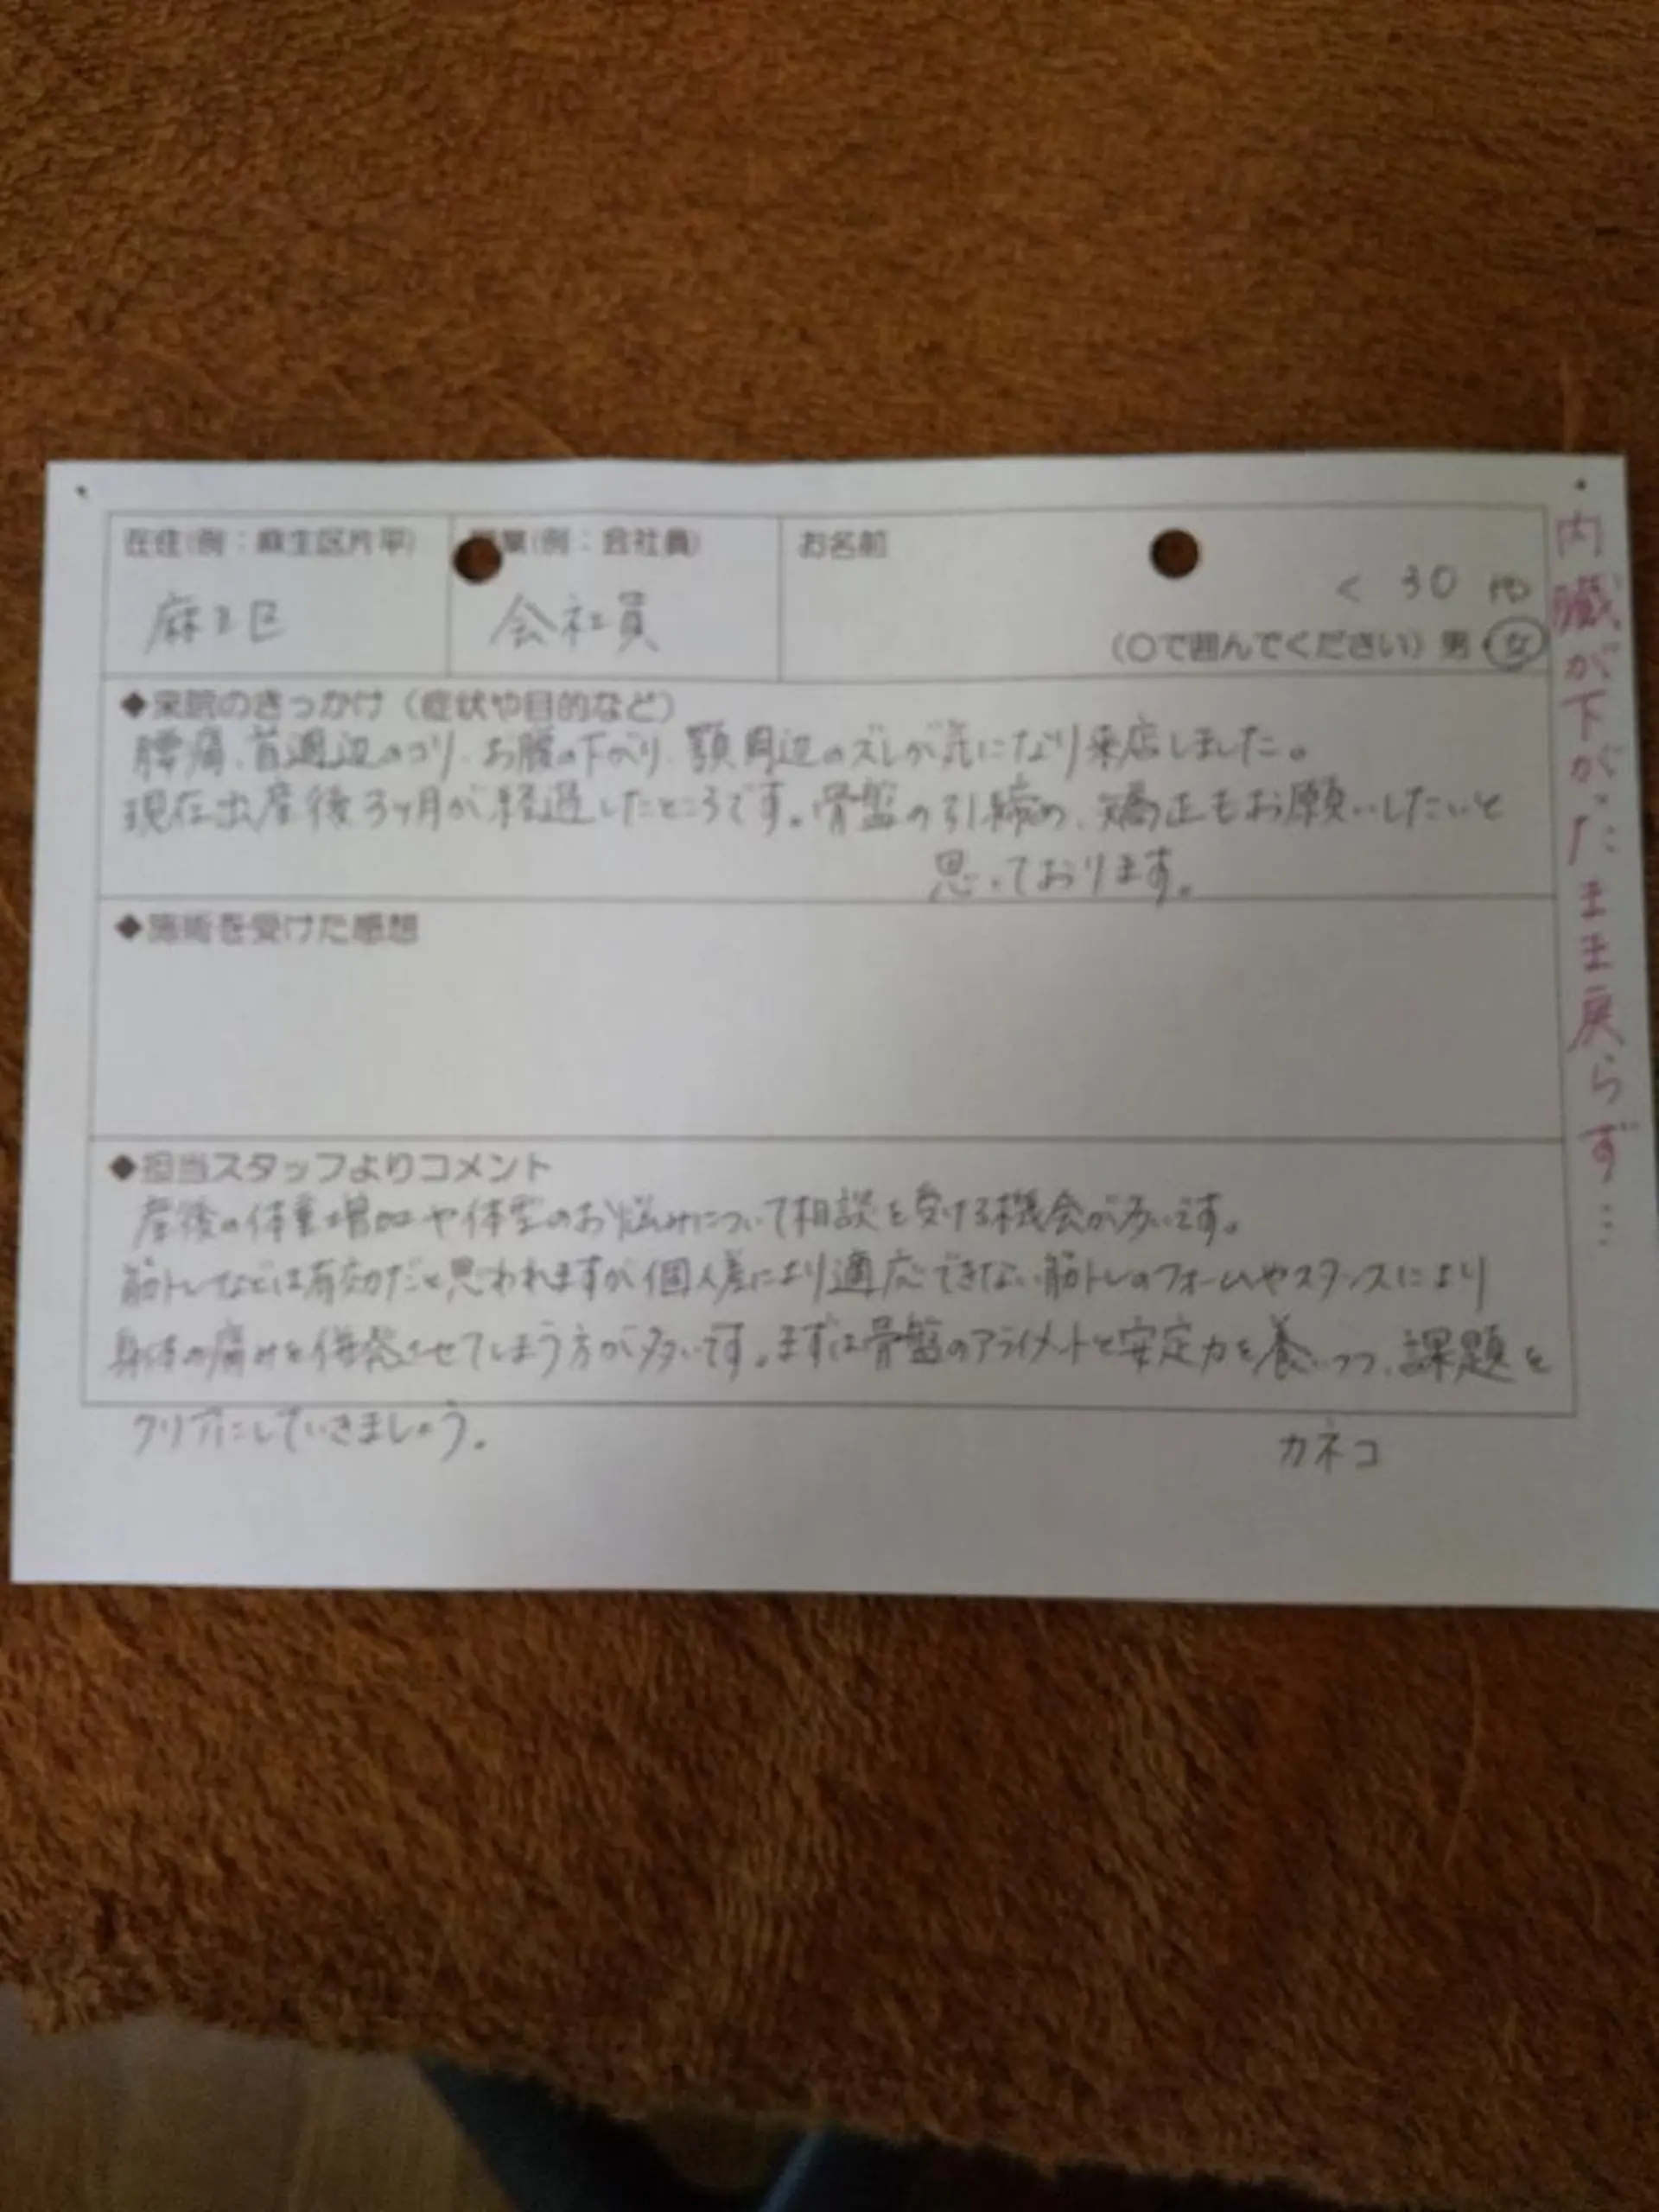 在住(例：麻生区片平)
麻生区
業(例：会社員)
会社員
お名前
< 30 代
(○で囲んでください) 男 女
◆来院のきっかけ（症状や目的など）
腰痛、首周辺のコリ、お腹の下がり、顎周辺のズレが気になり来店しました。
現在出産後3ヶ月が経過したところです。骨盤の引締め、矯正もお願いしたいと
思っております。
◆施術を受けた感想
◆担当スタッフよりコメント
産後の体重増加や体型のお悩みについて相談を受ける機会が多いです。
筋トレなどは有効だと思われますが個人差により適応できない筋トレのフォームやスタンスにより
身体の痛みを併発させてしまう方が多いです。まずは骨盤のアライメントと安定力を養いつつ、課題を
クリアにしていきましょう。
カネコ
内臓が下がったまま戻らず…